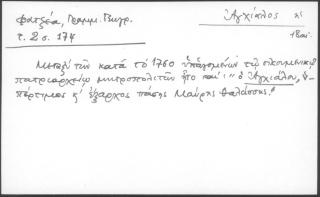 φατζέα, Γραμμ. Πυργ.
τ. 2 σ. 174
Ἀγχίαλος
18 αἰ.
Μεταξὺ τῶν κατὰ τὸ 1760 ὑπαγομένων τῷ οἰκουμενικῷ
πατριαρχείῳ μητροπολιτῶν ἦτο καὶ: "ὁ Ἀγχιάλου, ὑ-
πέρτιμος κ' ἔξαρχος πάσης Μαύρης Θαλάσσης."